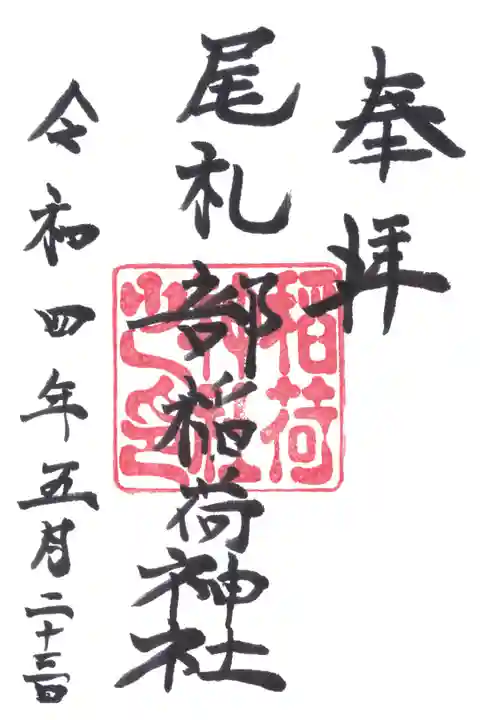 奉拝
尾札部稲荷神社
稲荷神社之印
令和四年五月二十三日